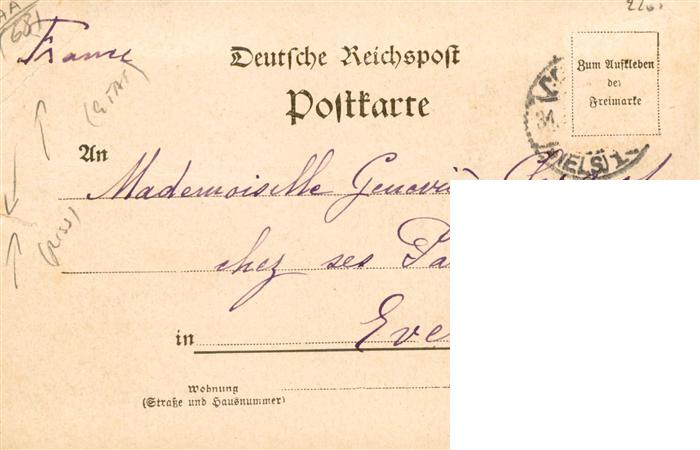 AA
(68)
France
(ETAT)
Deutsche Reichspost
Postkarte
Zum Aufkleben
der
Freimarke
31.
(ELS) 1
An
Mademoiselle
chez ses
in
Wohnung
(Straße und Hausnummer)